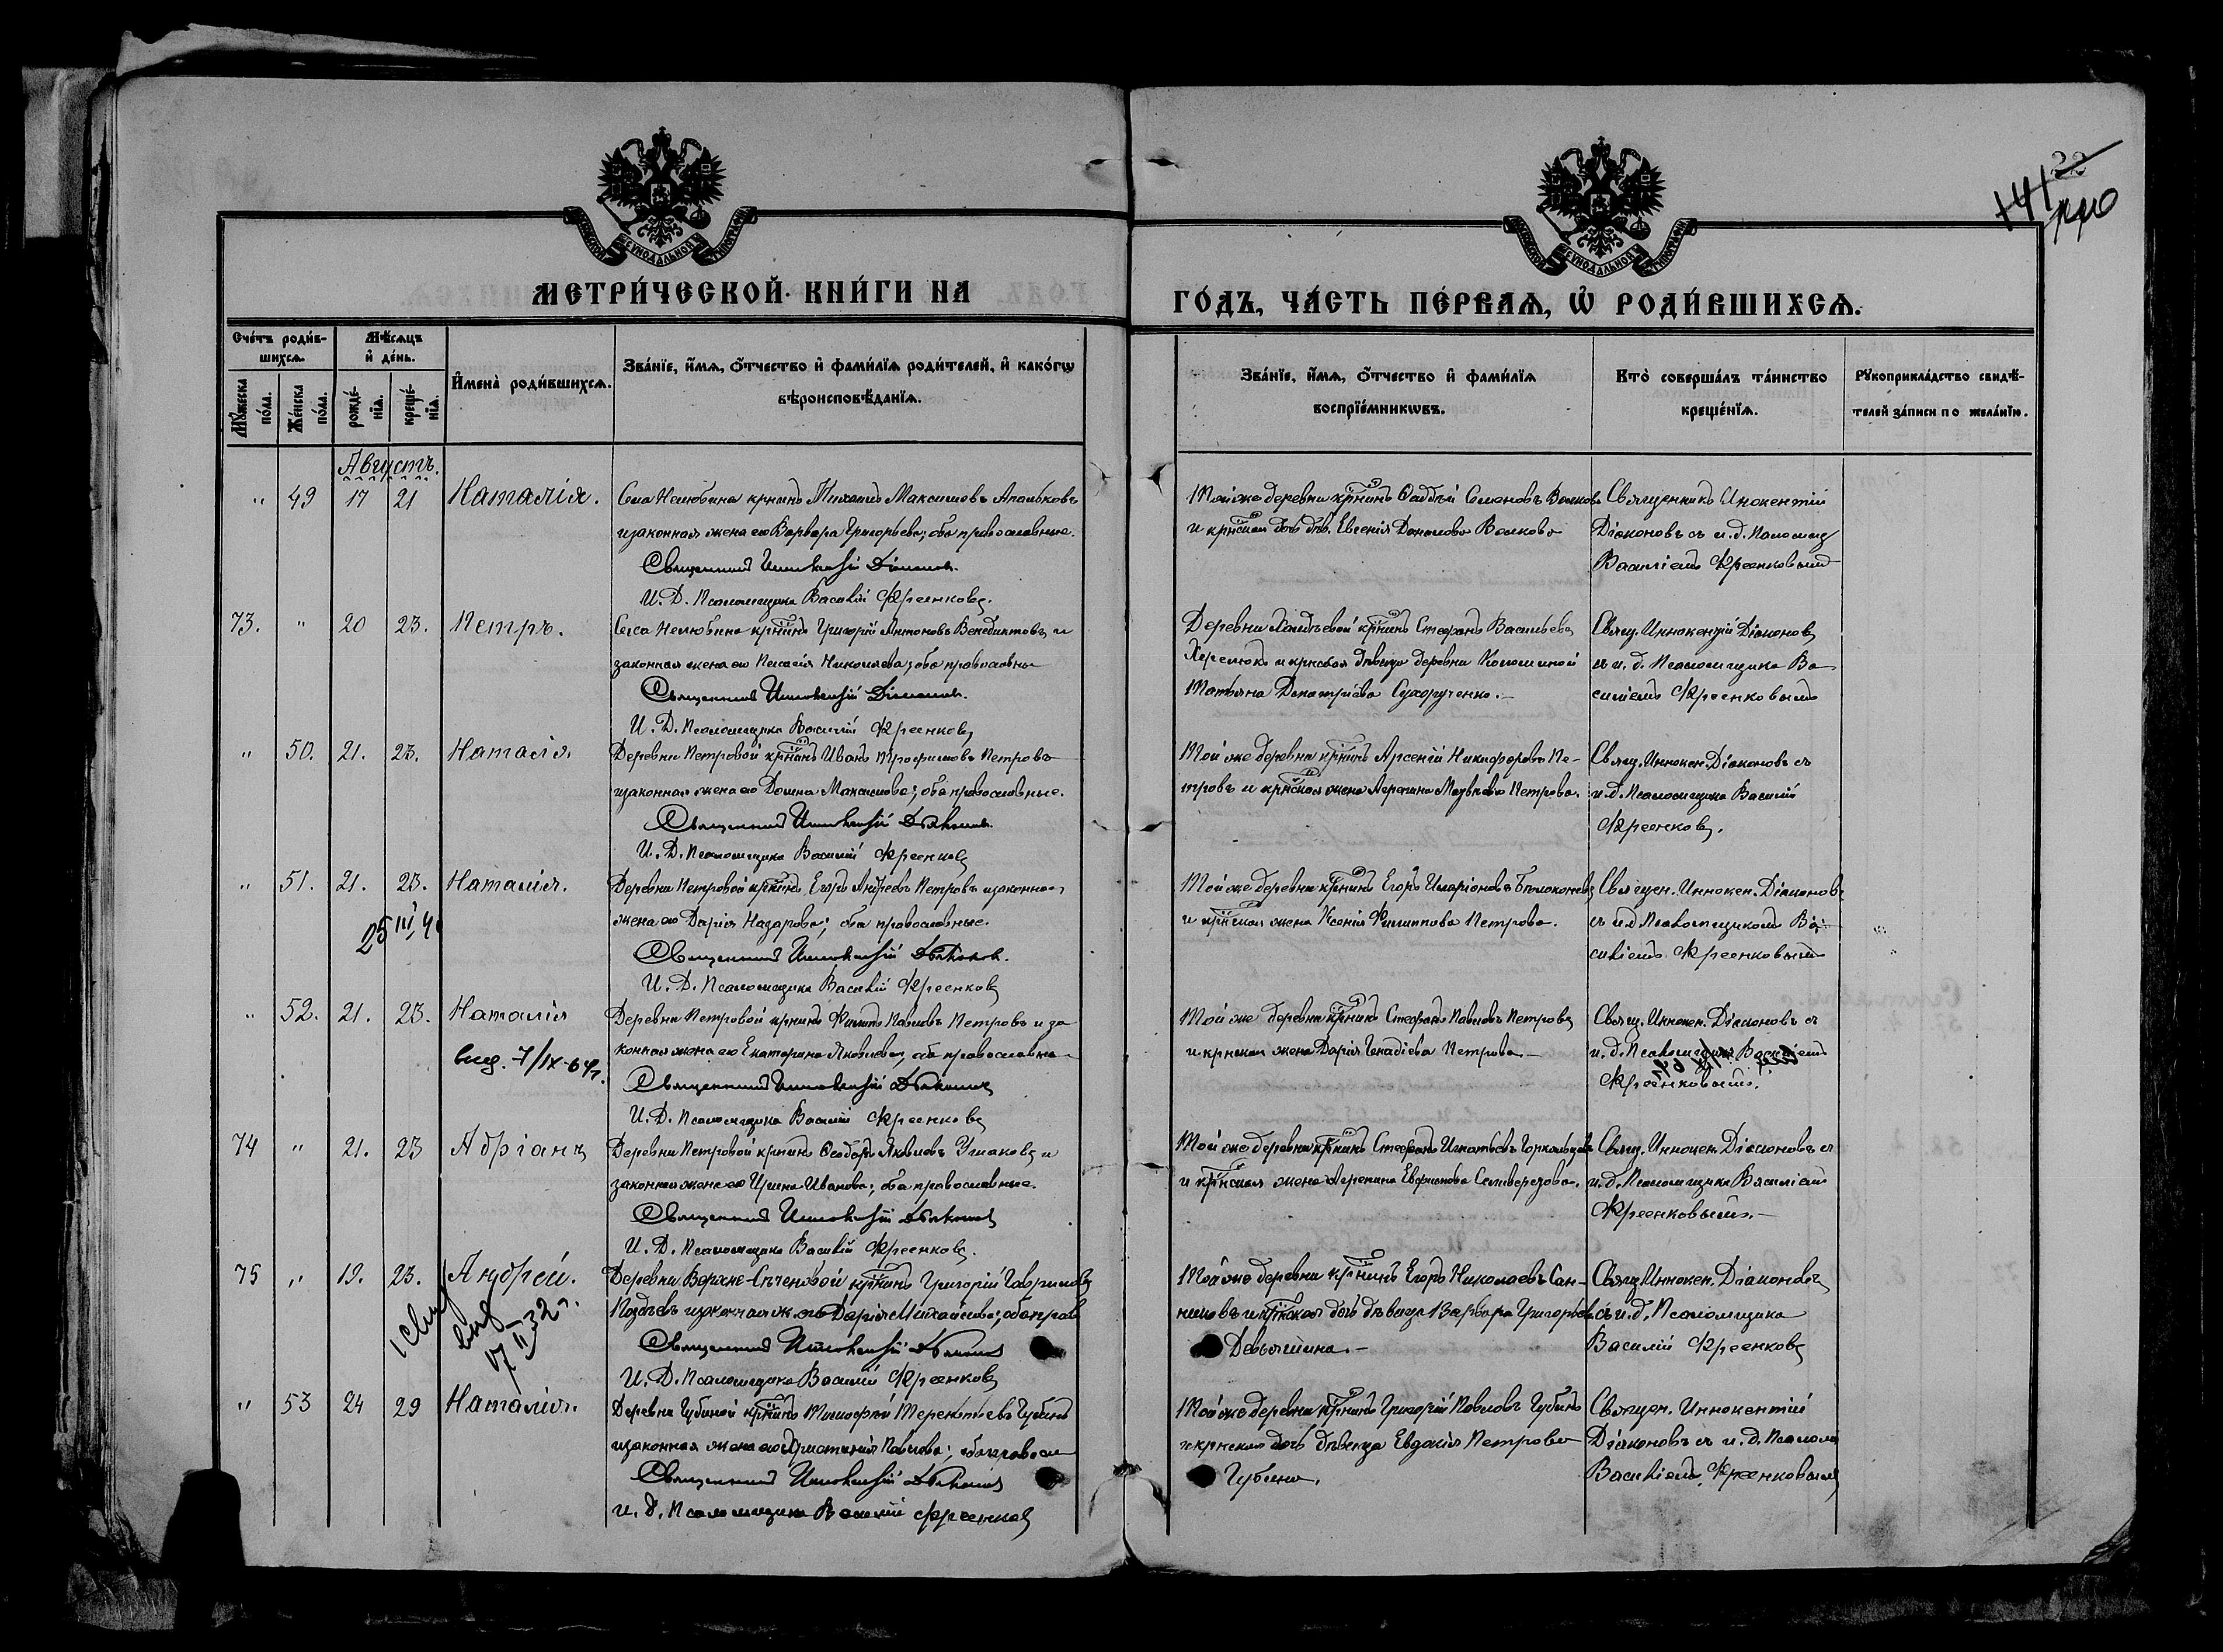 МОСКОВСКОЙ СѴНОДАЛЬНОЙ ТИПОГРАФІИ
МОСКОВСКОЙ СѴНОДАЛЬНОЙ ТИПОГРАФІИ
22
МЕТРИ́ЧЕСКОЙ КНИ́ГИ НА
ГО́ДЪ, ЧА́СТЬ ПЕ́РВАѦ, Ѡ҆ РОДИ́ВШИХСѦ.
Сче́тъ роди́в-
шихсѧ.
Мѣ́сѧцъ
и҆ де́нь.
Мꙋ́жеска по́ла.
Же́нска по́ла.
рожде́-нїѧ.
креще́-нїѧ.
И҆мена̀ роди́вшихсѧ.
Зва́нїе, и҆́мѧ, ѻ҆́тчество и҆ фами́лїѧ роди́телей, и҆ како́гѡ
вѣроисповѣ́данїѧ.
Зва́нїе, и҆́мѧ, ѻ҆́тчество и҆ фами́лїѧ
воспрїе́мникѡвъ.
Кто̀ соверша́лъ та́инство
креще́нїѧ.
Рꙋкоприкла́дство свидѣ́-
телей за́писи по жела́нїю.
Августъ.
" 49 17 21 Наталія.
Села Нелюбина крнинъ Максимовъ
и законная жена его Варвара Григорьева; оба православные.
Священникъ Иннокентій Діаконов.
И. Д. Псаломщика Василій Фреенковъ.
Той же деревни крнинъ Семеновъ Волковъ
и крнская дочь дѣв. Евгенія Волкова
Священникъ Инокентій
Діаконовъ съ и. д. Псаломщ
Василіемъ Фреенковымъ
73. " 20 23. Петръ.
Села Нелюбина крнинъ Григорій Антоновъ Венедиктовъ и
законная жена его Пелагія Николаева; оба православны
Священникъ Иннокентій Діаконов.
И. Д. Псаломщика Василій Фреенковъ
Деревни крнинъ Стефанъ Васильевъ
и крнская дѣвица деревни Коломиной
Сухорученко.
Свящ. Иннокентій Діаконовъ
съ и. д. Псаломщика Ва
силіемъ Фреенковымъ
" 50. 21. 23. Наталія
Деревни Петровой крнинъ Иванъ Трофимовъ Петровъ
и законная жена его Домна Максимова; оба православные.
Священникъ Иннокентій Діаконов.
И. Д. Псаломщика Василій Фреенковъ
Той же деревни крнинъ Арсеній Никифоровъ Пе-
тровъ и крнская жена Петрова.
Свящ. Иннокен. Діаконовъ съ
и. д. Псаломщика Василій
Фреенковъ.
" 51. 21. 23. Наталія.
Деревни Петровой крнинъ Егоръ Андреевъ Петровъ и законная
жена его Дарія Назарова; оба православные.
25 III 4
Священникъ Иннокентій Діаконов.
И. Д. Псаломщика Василій Фреенковъ
Той же деревни крнинъ Егоръ Иларіоновъ Бѣлоконевъ
и крнская жена Ксенія Филиппова Петрова.
Священ. Иннокен. Діаконовъ
съ и. д. Псаломщикомъ Ва-
силіемъ Фреенковымъ
" 52. 21. 23. Наталія
Деревни Петровой крнинъ Филиппъ Павловъ Петровъ и за
конная жена его Екатерина Яковлева, оба православна
выд. 7/IX-64г.
Священникъ Иннокентій Діаконов
И. Д. Псаломщика Василій Фреенковъ
Той же деревни крнинъ Стефанъ Павловъ Петровъ
и крнская жена Дарія Генадіева Петрова
Свящ. Иннокен. Діаконовъ съ
и. д. Псаломщика Василіемъ
Фреенковымъ.
74 " 21. 23 Адріанъ
Деревни Петровой крнинъ Ѳеодоръ Яковлевъ Ушаковъ и
законная жена его Ирина Иванова; оба православные.
Священникъ Иннокентій Діаконов
И. Д. Псаломщика Василій Фреенковъ.
Той же деревни крнинъ Стефанъ Игнатьевъ
и крнская жена Селиверстова.
Свящ. Иннокен. Діаконовъ съ
и. д. Псаломщика Василіемъ
Фреенковымъ.
75 " 19. 23. Андрей.
Деревни Верхне-Сѣченовой крнинъ Григорій Гавриловъ
и законная ж. его Дарія Михайлова; оба прав
выд 17 II 32 г.
Священникъ Иннокентій Діаконов
И. Д. Псаломщика Василій Фреенковъ
Той же деревни крнинъ Егоръ Николаевъ Сан-
никовъ и крнская дочь дѣвица Варвара Григорьева
Девяшина.
Свящ Иннокен. Діаконовъ
съ и. д. Псаломщика
Василій Фреенковъ
" 53 24 29 Наталія.
Деревни Губиной крнинъ Тимофѣй Терентьевъ Губинъ
и законная жена его Христинія Павлова; оба правосл
Священникъ Иннокентій Діаконов
И. Д. Псаломщика Василій Фреенковъ
Той же деревни крнинъ Григорій Павловъ Губинъ
и крнская дочь дѣвица Евдокія Петрова
Губина.
Священ. Иннокентій
Діаконовъ съ и. д. Псалом
Василіемъ Фреенковымъ